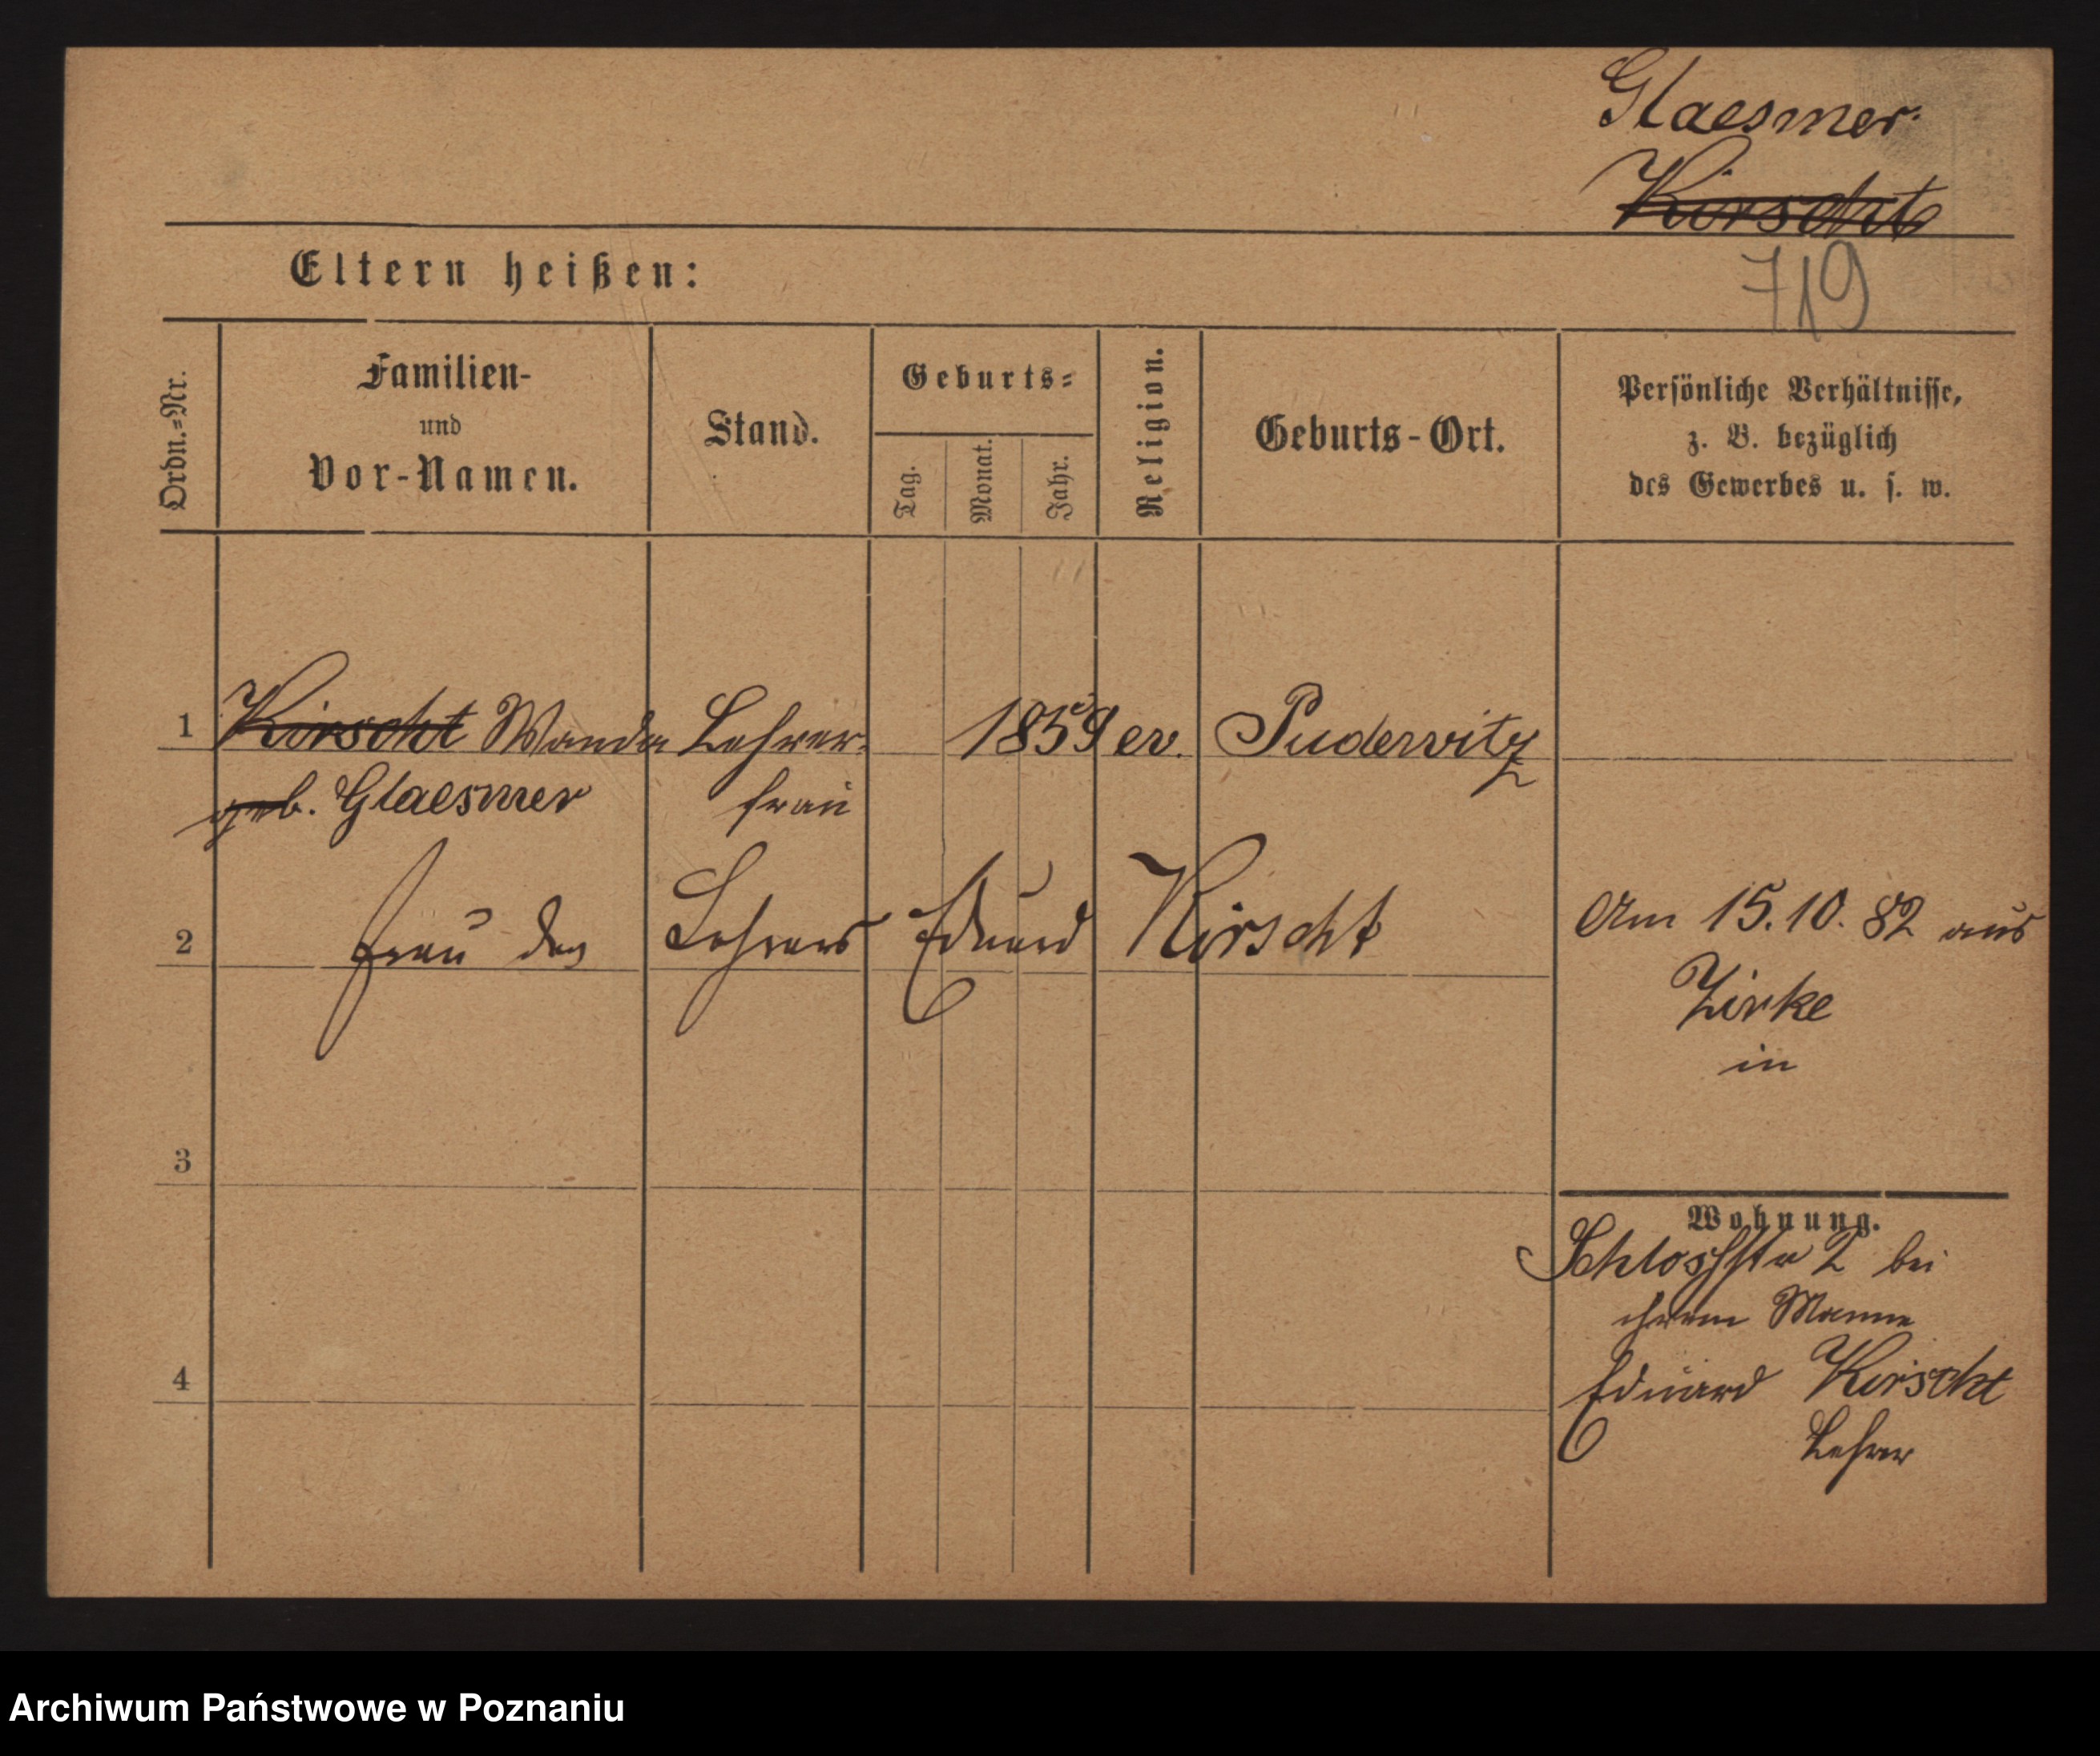 Glaesmer.
Kirscht
719
Eltern heißen:
Ordn.=Nr.
Familien-
und
Vor-Namen.
Stand.
Geburts=
Tag.
Monat.
Jahr.
Religion.
Geburts-Ort.
Persönliche Verhältnisse,
z. B. bezüglich
des Gewerbes u. s. w.
1 Kirscht Wanda Lehrer- 1859 ev. Pudewitz
geb. Glaesmer frau
2 Frau des Lehrers Eduard Kirscht
Am 15.10.82 aus
Zirke
in
3
Wohnung.
Schloßstr 2 bei
ihrem Manne
4
Eduard Kirscht
Lehrer
Archiwum Państwowe w Poznaniu